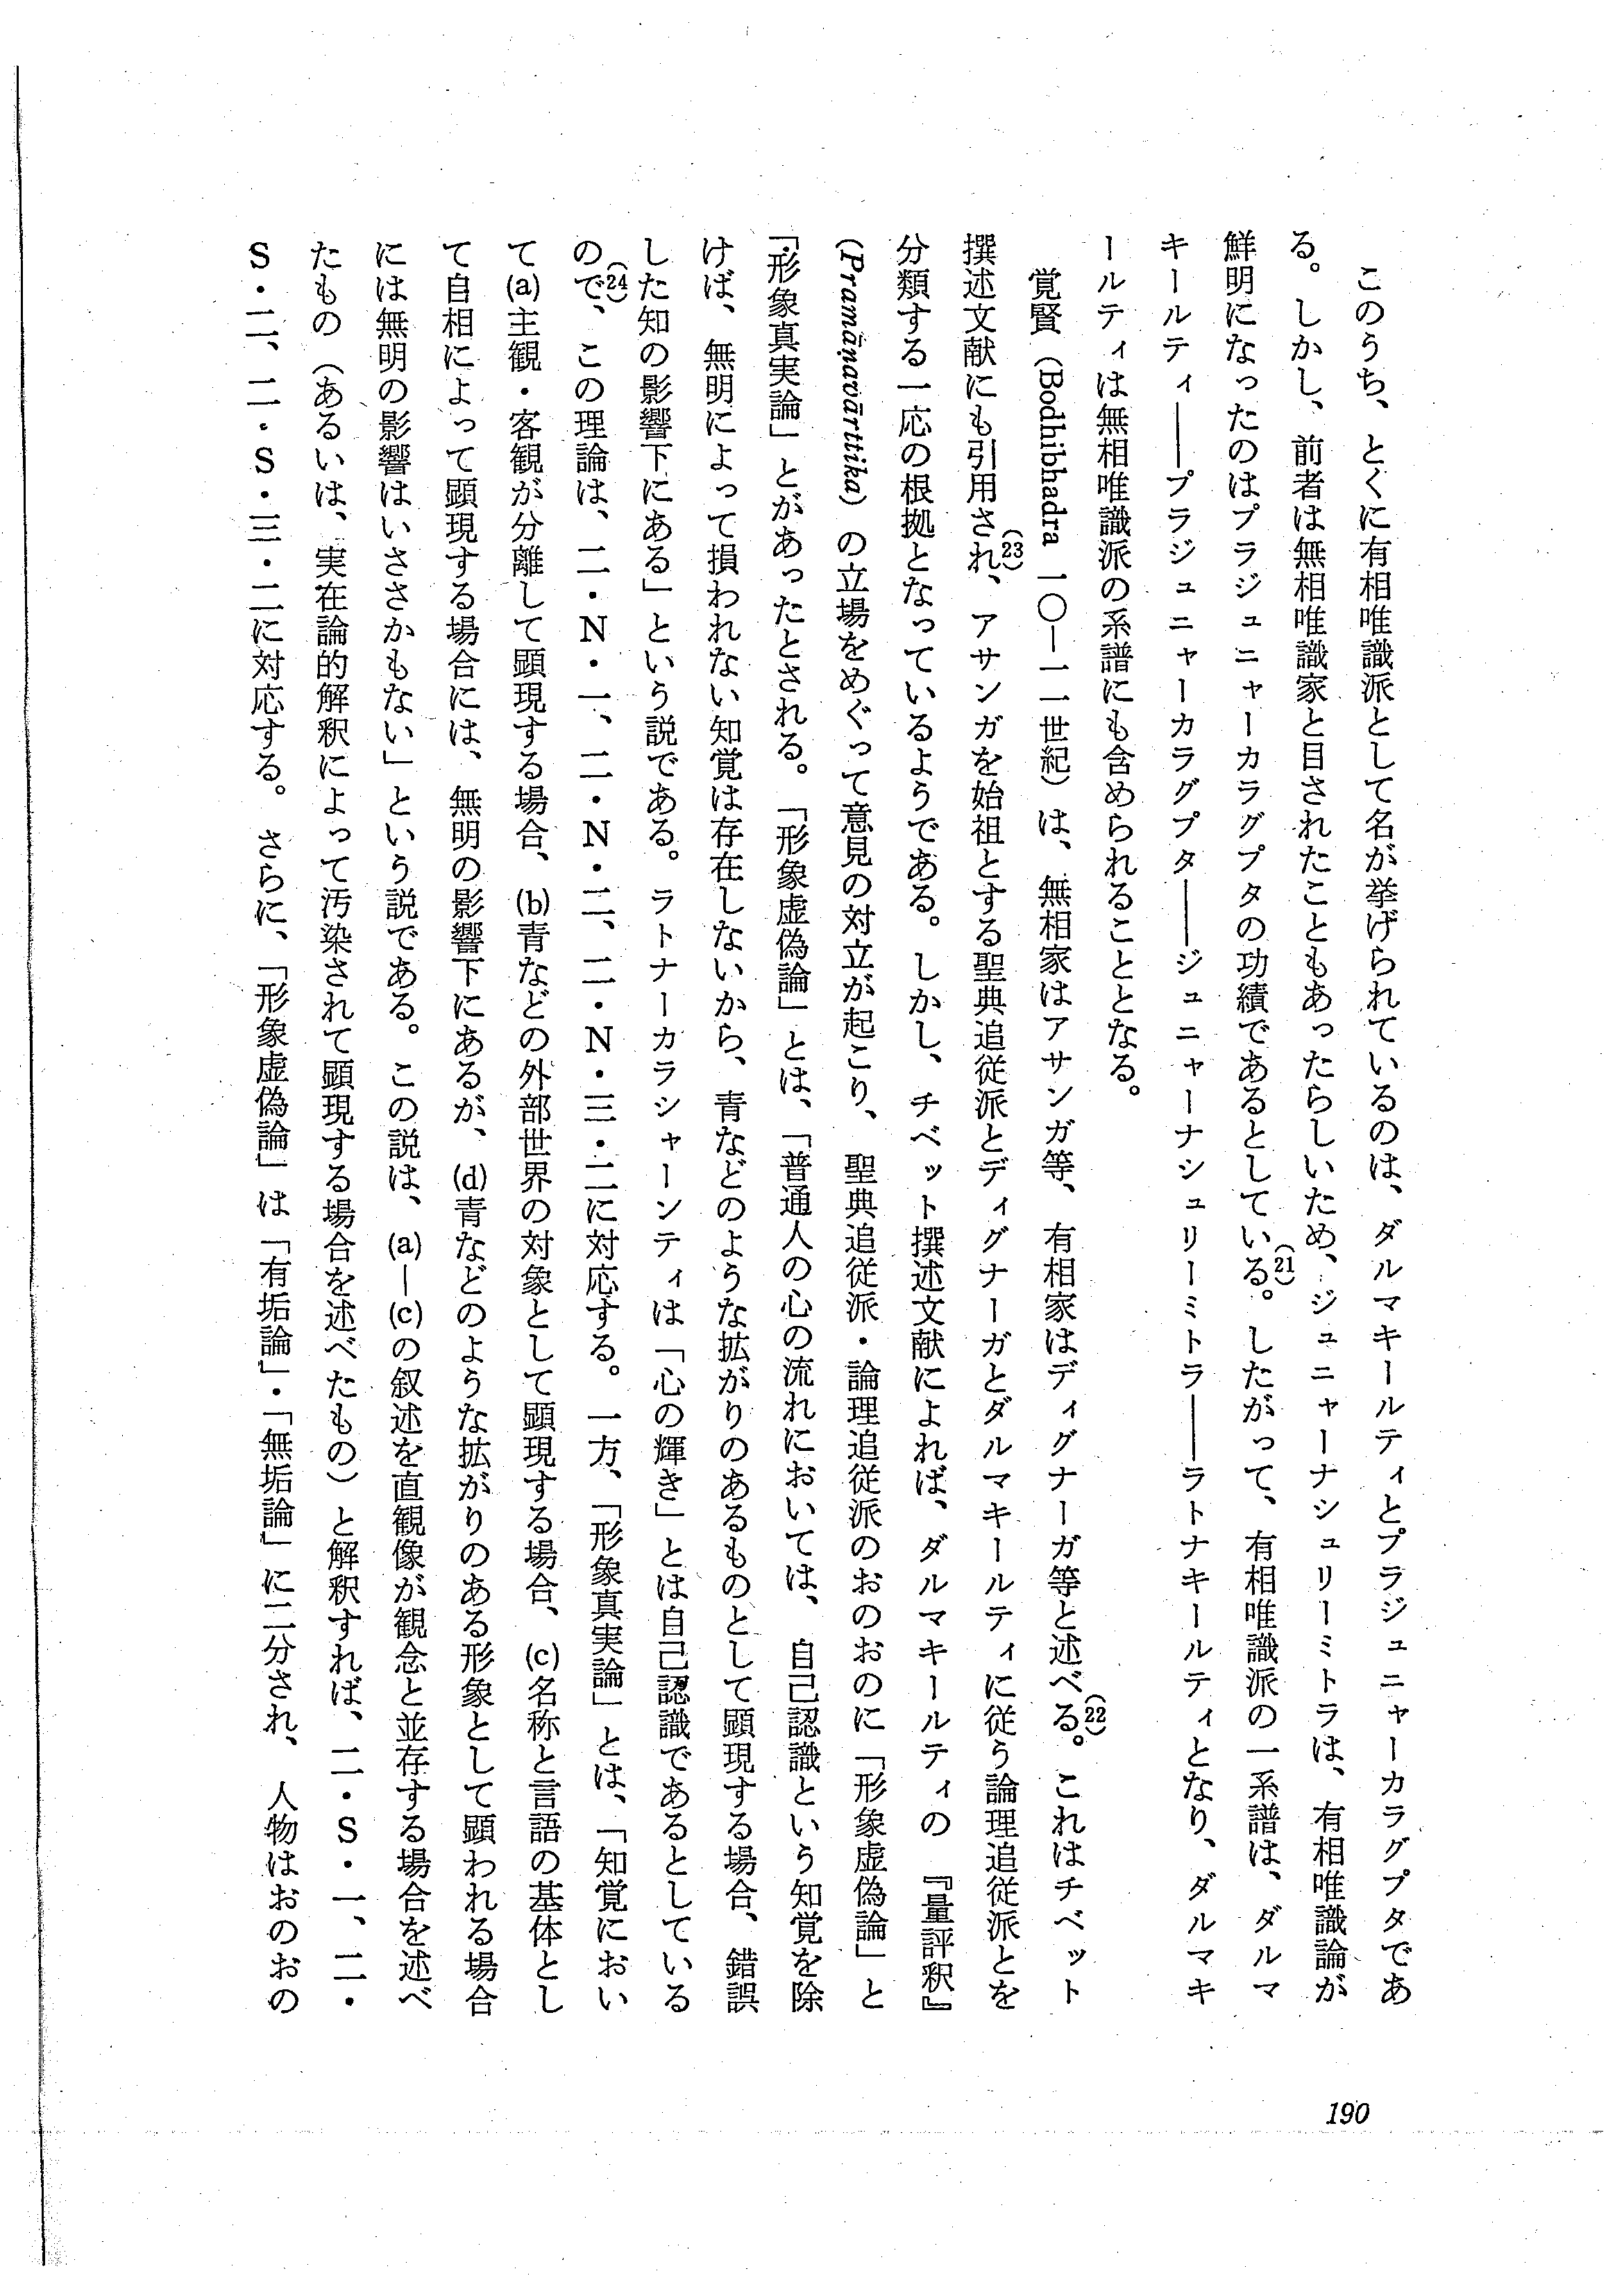 このうち、とくに有相唯識派として名が挙げられているのは、ダルマキールティとプラジュニャーカラグプタであ
る。しかし、前者は無相唯識家と目されたこともあったらしいため、ジュニャーナシュリーミトラは、有相唯識論が
鮮明になったのはプラジュニャーカラグプタの功績であるとしている(21)。したがって、有相唯識派の一系譜は、ダルマ
キールティ――プラジュニャーカラグプタ――ジュニャーナシュリーミトラ――ラトナキールティとなり、ダルマキ
ールティは無相唯識派の系譜にも含められることとなる。
覚賢（Bodhibhadra 一〇―一一世紀）は、無相家はアサンガ等、有相家はディグナーガ等と述べる(22)。これはチベット
撰述文献にも引用され(23)、アサンガを始祖とする聖典追従派とディグナーガとダルマキールティに従う論理追従派とを
分類する一応の根拠となっているようである。しかし、チベット撰述文献によれば、ダルマキールティの『量評釈』
（Pramāṇavārttika）の立場をめぐって意見の対立が起こり、聖典追従派・論理追従派のおのおのに「形象虚偽論」と
「形象真実論」とがあったとされる。「形象虚偽論」とは、「普通人の心の流れにおいては、自己認識という知覚を除
けば、無明によって損われない知覚は存在しないから、青などのような拡がりのあるものとして顕現する場合、錯誤
した知の影響下にある」という説である。ラトナーカラシャーンティは「心の輝き」とは自己認識であるとしている
ので(24)、この理論は、二・N・一、二・N・二、二・N・三・二に対応する。一方、「形象真実論」とは、「知覚におい
て(a)主観・客観が分離して顕現する場合、(b)青などの外部世界の対象として顕現する場合、(c)名称と言語の基体とし
て自相によって顕現する場合には、無明の影響下にあるが、(d)青などのような拡がりのある形象として顕われる場合
には無明の影響はいささかもない」という説である。この説は、(a)―(c)の叙述を直観像が観念と並存する場合を述べ
たもの（あるいは、実在論的解釈によって汚染されて顕現する場合を述べたもの）と解釈すれば、二・S・一、二・
S・二、二・S・三・二に対応する。さらに、「形象虚偽論」は「有垢論」・「無垢論」に二分され、人物はおのおの
190